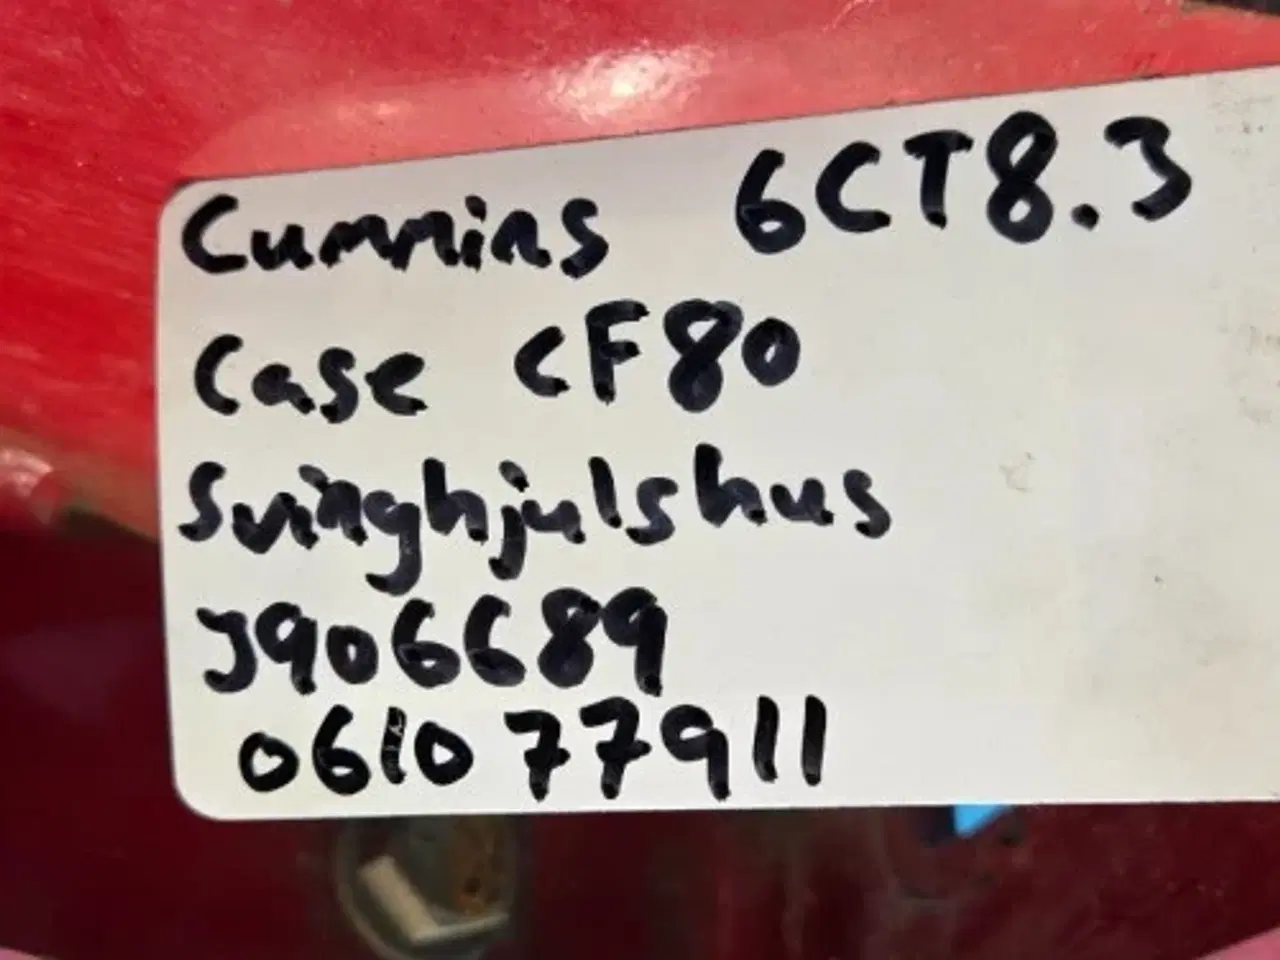 Cummins 6CT8.3
Case CF80
Svinghjulshus
J906689
061077911